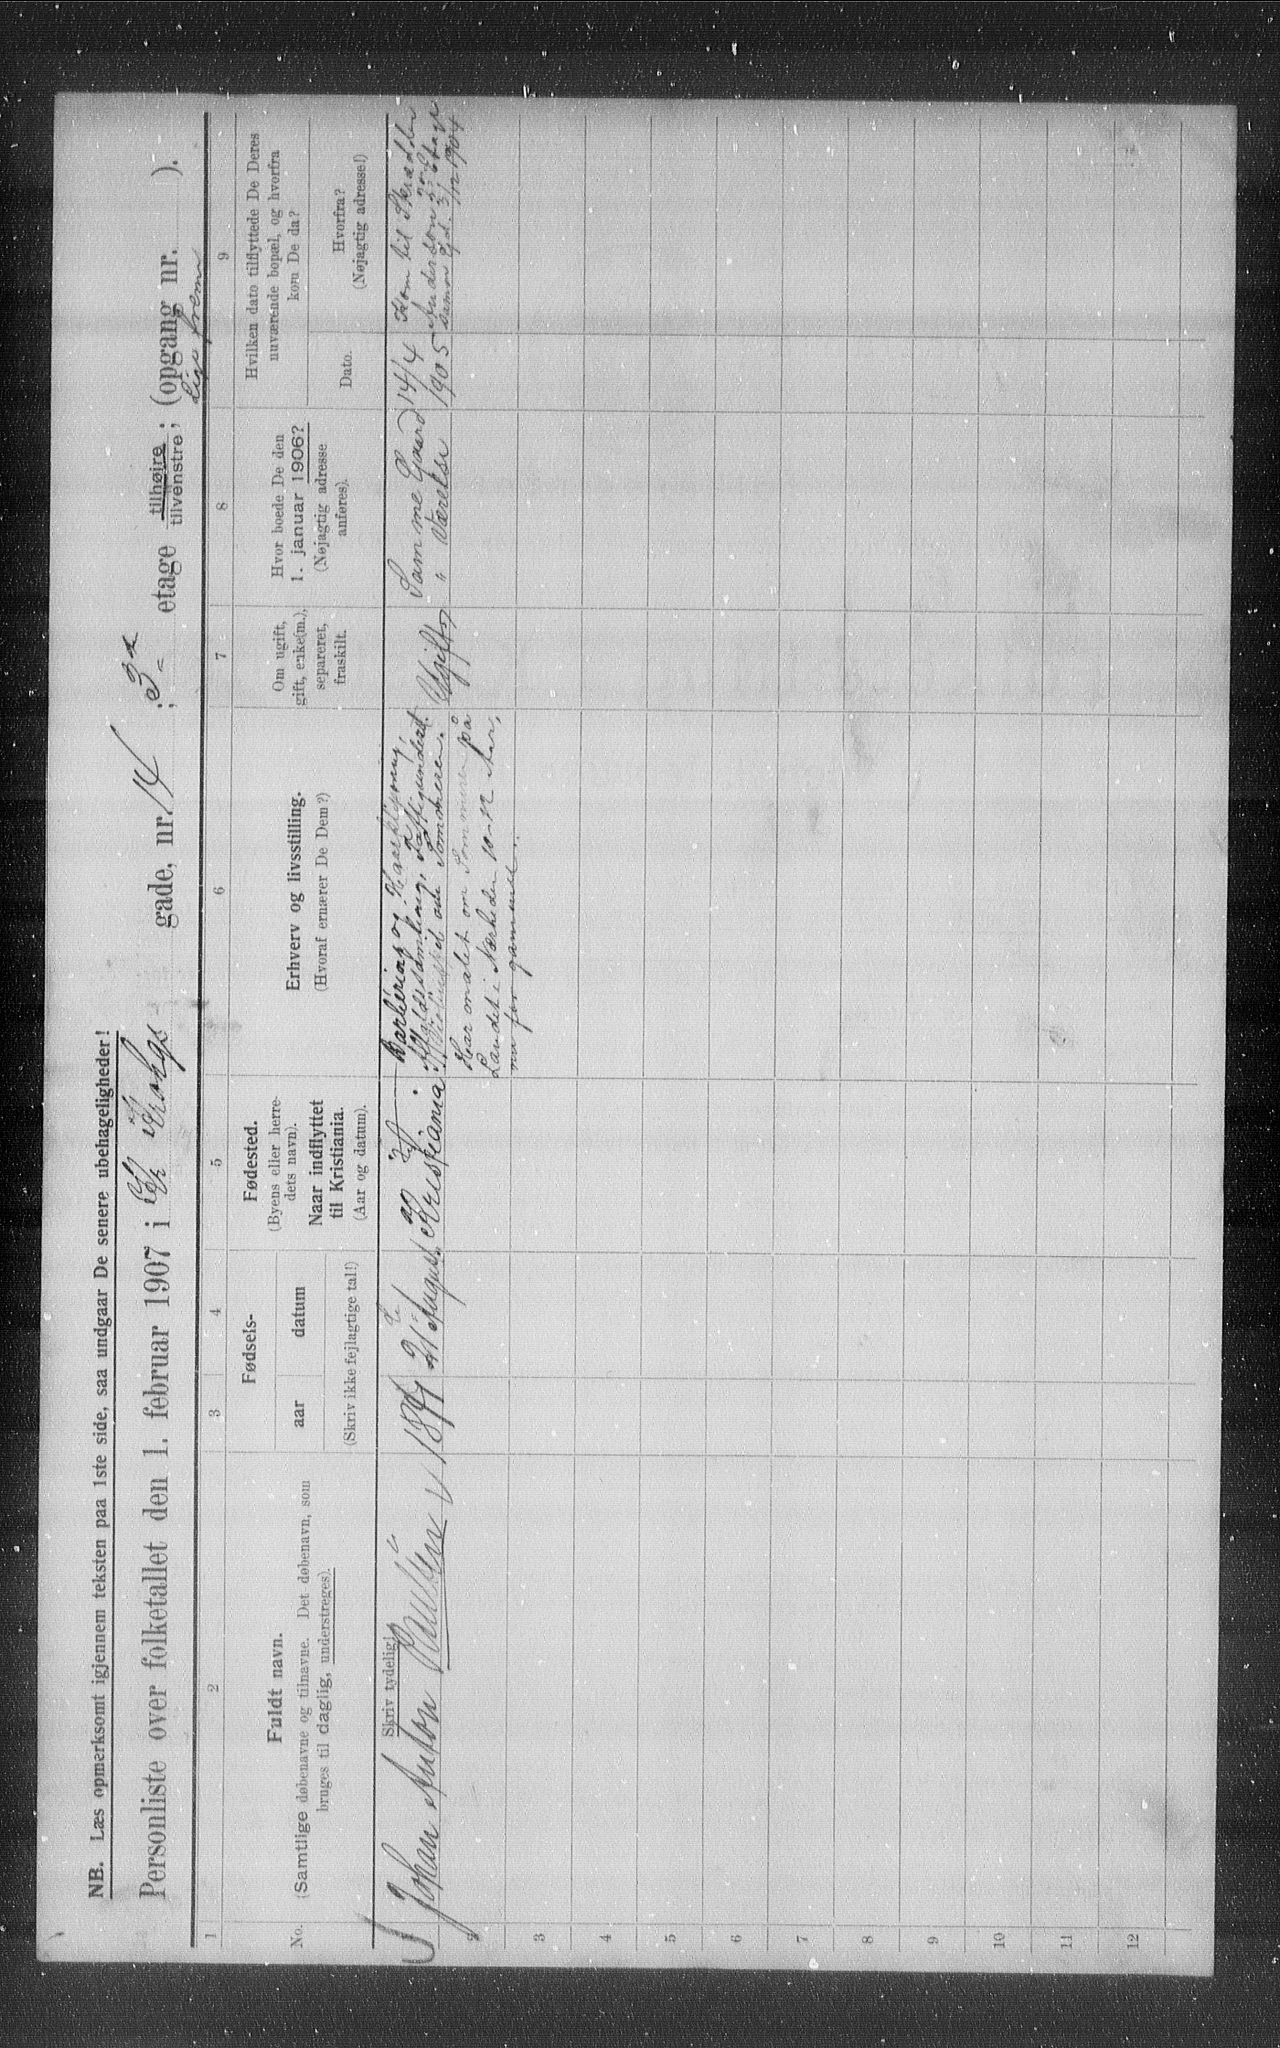 NB. Læs opmerksomt igjennem teksten paa 1ste side, saa undgaar De senere ubehageligheder!
Personliste over folketallet den 1. februar 1907 i Chr Krohgs gade, nr. 14; 3- etage tilhøire; tilvenstre; (opgang nr. ).
lige frem
1 2 3 4 5 6 7 8 9
No.
Fuldt navn.
(Samtlige døbenavne og tilnavne. Det døbenavn, som
bruges til daglig, understreges).
Fødsels-
aar
datum
(Skriv ikke fejlagtige tal!)
Fødested.
(Byens eller herre-
dets navn).
Naar indflyttet
til Kristiania.
(Aar og datum).
Erhverv og livsstilling.
(Hvoraf ernærer De Dem?)
Om ugift,
gift, enke(m.),
separeret,
fraskilt.
Hvor boede De den
1. januar 1906?
(Nøjagtig adresse
anføres).
Hvilken dato tilflyttede De Deres
nuværende bopæl, og hvorfra
kom De da?
Dato.
Hvorfra?
(Nøjagtig adresse!)
Skriv tydelig!
Johan Anton 21 August Kristiania
Barbering og Haarklipning,
Sommeren.
Har malet om Sommeren på
Landet i Nærheden 10-12 Aar,
nu for gammel.
Ugift
Samme Gaard
" Værelse
14/4
1905
Kom til Skrædder
Anderson 3 Etage
samme Gd. 3/12 1904
2
3
4
5
6
7
8
9
10
11
12